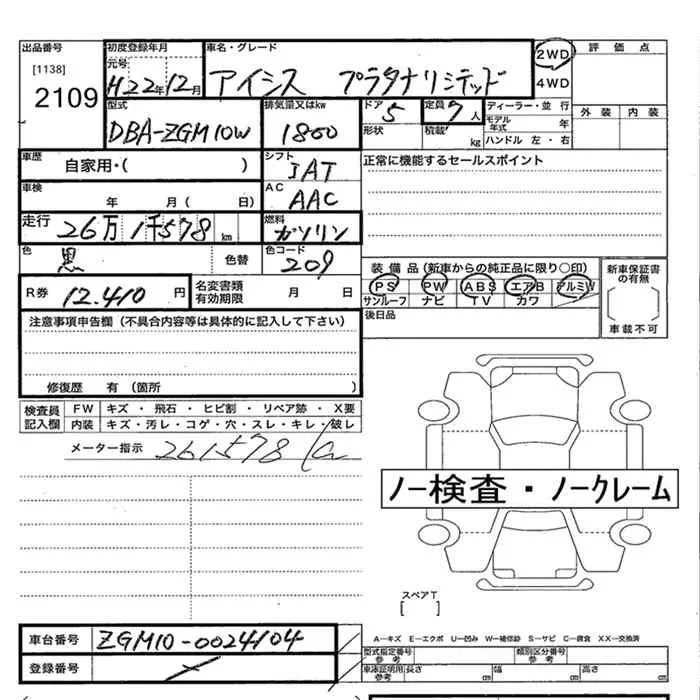 出品番号 初度登録年月 車名・グレード 2WD 評価点
[1138] 元号 4WD
2109 H22年12月 アイシス プラタナリミテッド 外装 内装
型式 排気量又はkw ドア 5 定員 7人 ディーラー・並行
DBA-ZGM10W 1800 形状 積載 kg モデル年式 年
ハンドル 左・右
車歴 自家用・( ) シフト IAT 正常に機能するセールスポイント
車検 年 月( 日) AC AAC
走行 26万1千578km 燃料 ガソリン
色 黒 色替 色コード 209
装備品(新車からの純正品に限り○印) 新車保証書の有無
PS PW ABS エアB アルミW
サンルーフ ナビ TV カワ
R券 12.410円 名変書類有効期限 月 日 後日品 車載不可
注意事項申告欄(不具合内容等は具体的に記入して下さい)
修復歴 有(箇所 )
検査員記入欄 FW キズ・飛石・ヒビ割・リペア跡・X要
内装 キズ・汚レ・コゲ・穴・スレ・キレ・破レ
メーター指示 261578
ノー検査・ノークレーム
スペアT
[ ]
車台番号 ZGM10-0024104
A-キズ E-エクボ U-凹み W-補修跡 S-サビ C-腐食 XX-交換済
登録番号
型式指定番号 参考 類別区分番号 参考
車庫証明用 参考 長さ cm 幅 cm 高さ cm